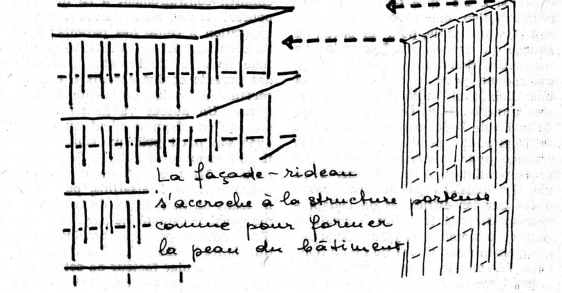 La façade-rideau
s'accroche à la structure porteuse
comme pour former
la peau du bâtiment